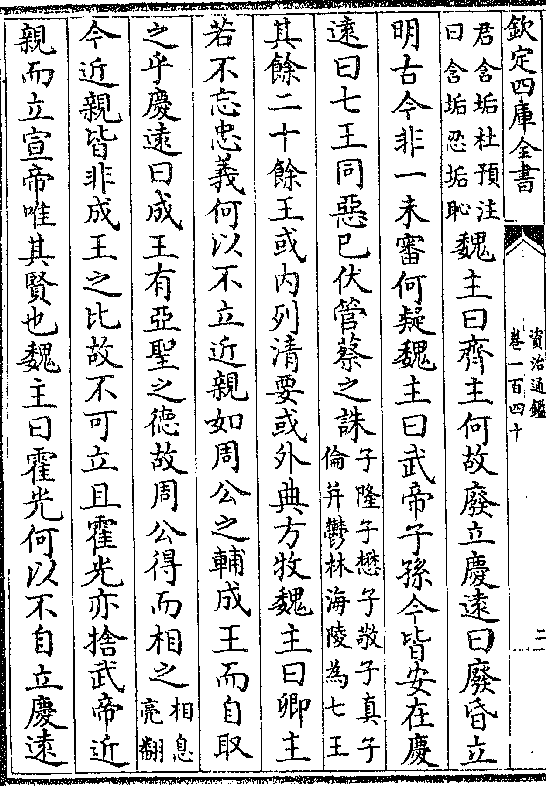 欽定四庫全書
資治通鑑
卷一百四十
二
君含垢杜預注
曰含垢忍垢恥
魏主曰齊主何故廢立慶遠曰廢昏立
明古今非一未審何疑魏主曰武帝子孫今皆安在慶
遠曰七王同惡已伏管蔡之誅
子隆子懋子敬子真子
倫并鬱林海陵為七王
其餘二十餘王或内列清要或外典方牧魏主曰卿主
若不忘忠義何以不立近親如周公之輔成王而自取
之乎慶遠曰成王有亞聖之德故周公得而相之
相息
亮翻
今近親皆非成王之比故不可立且霍光亦捨武帝近
親而立宣帝唯其賢也魏主曰霍光何以不自立慶遠